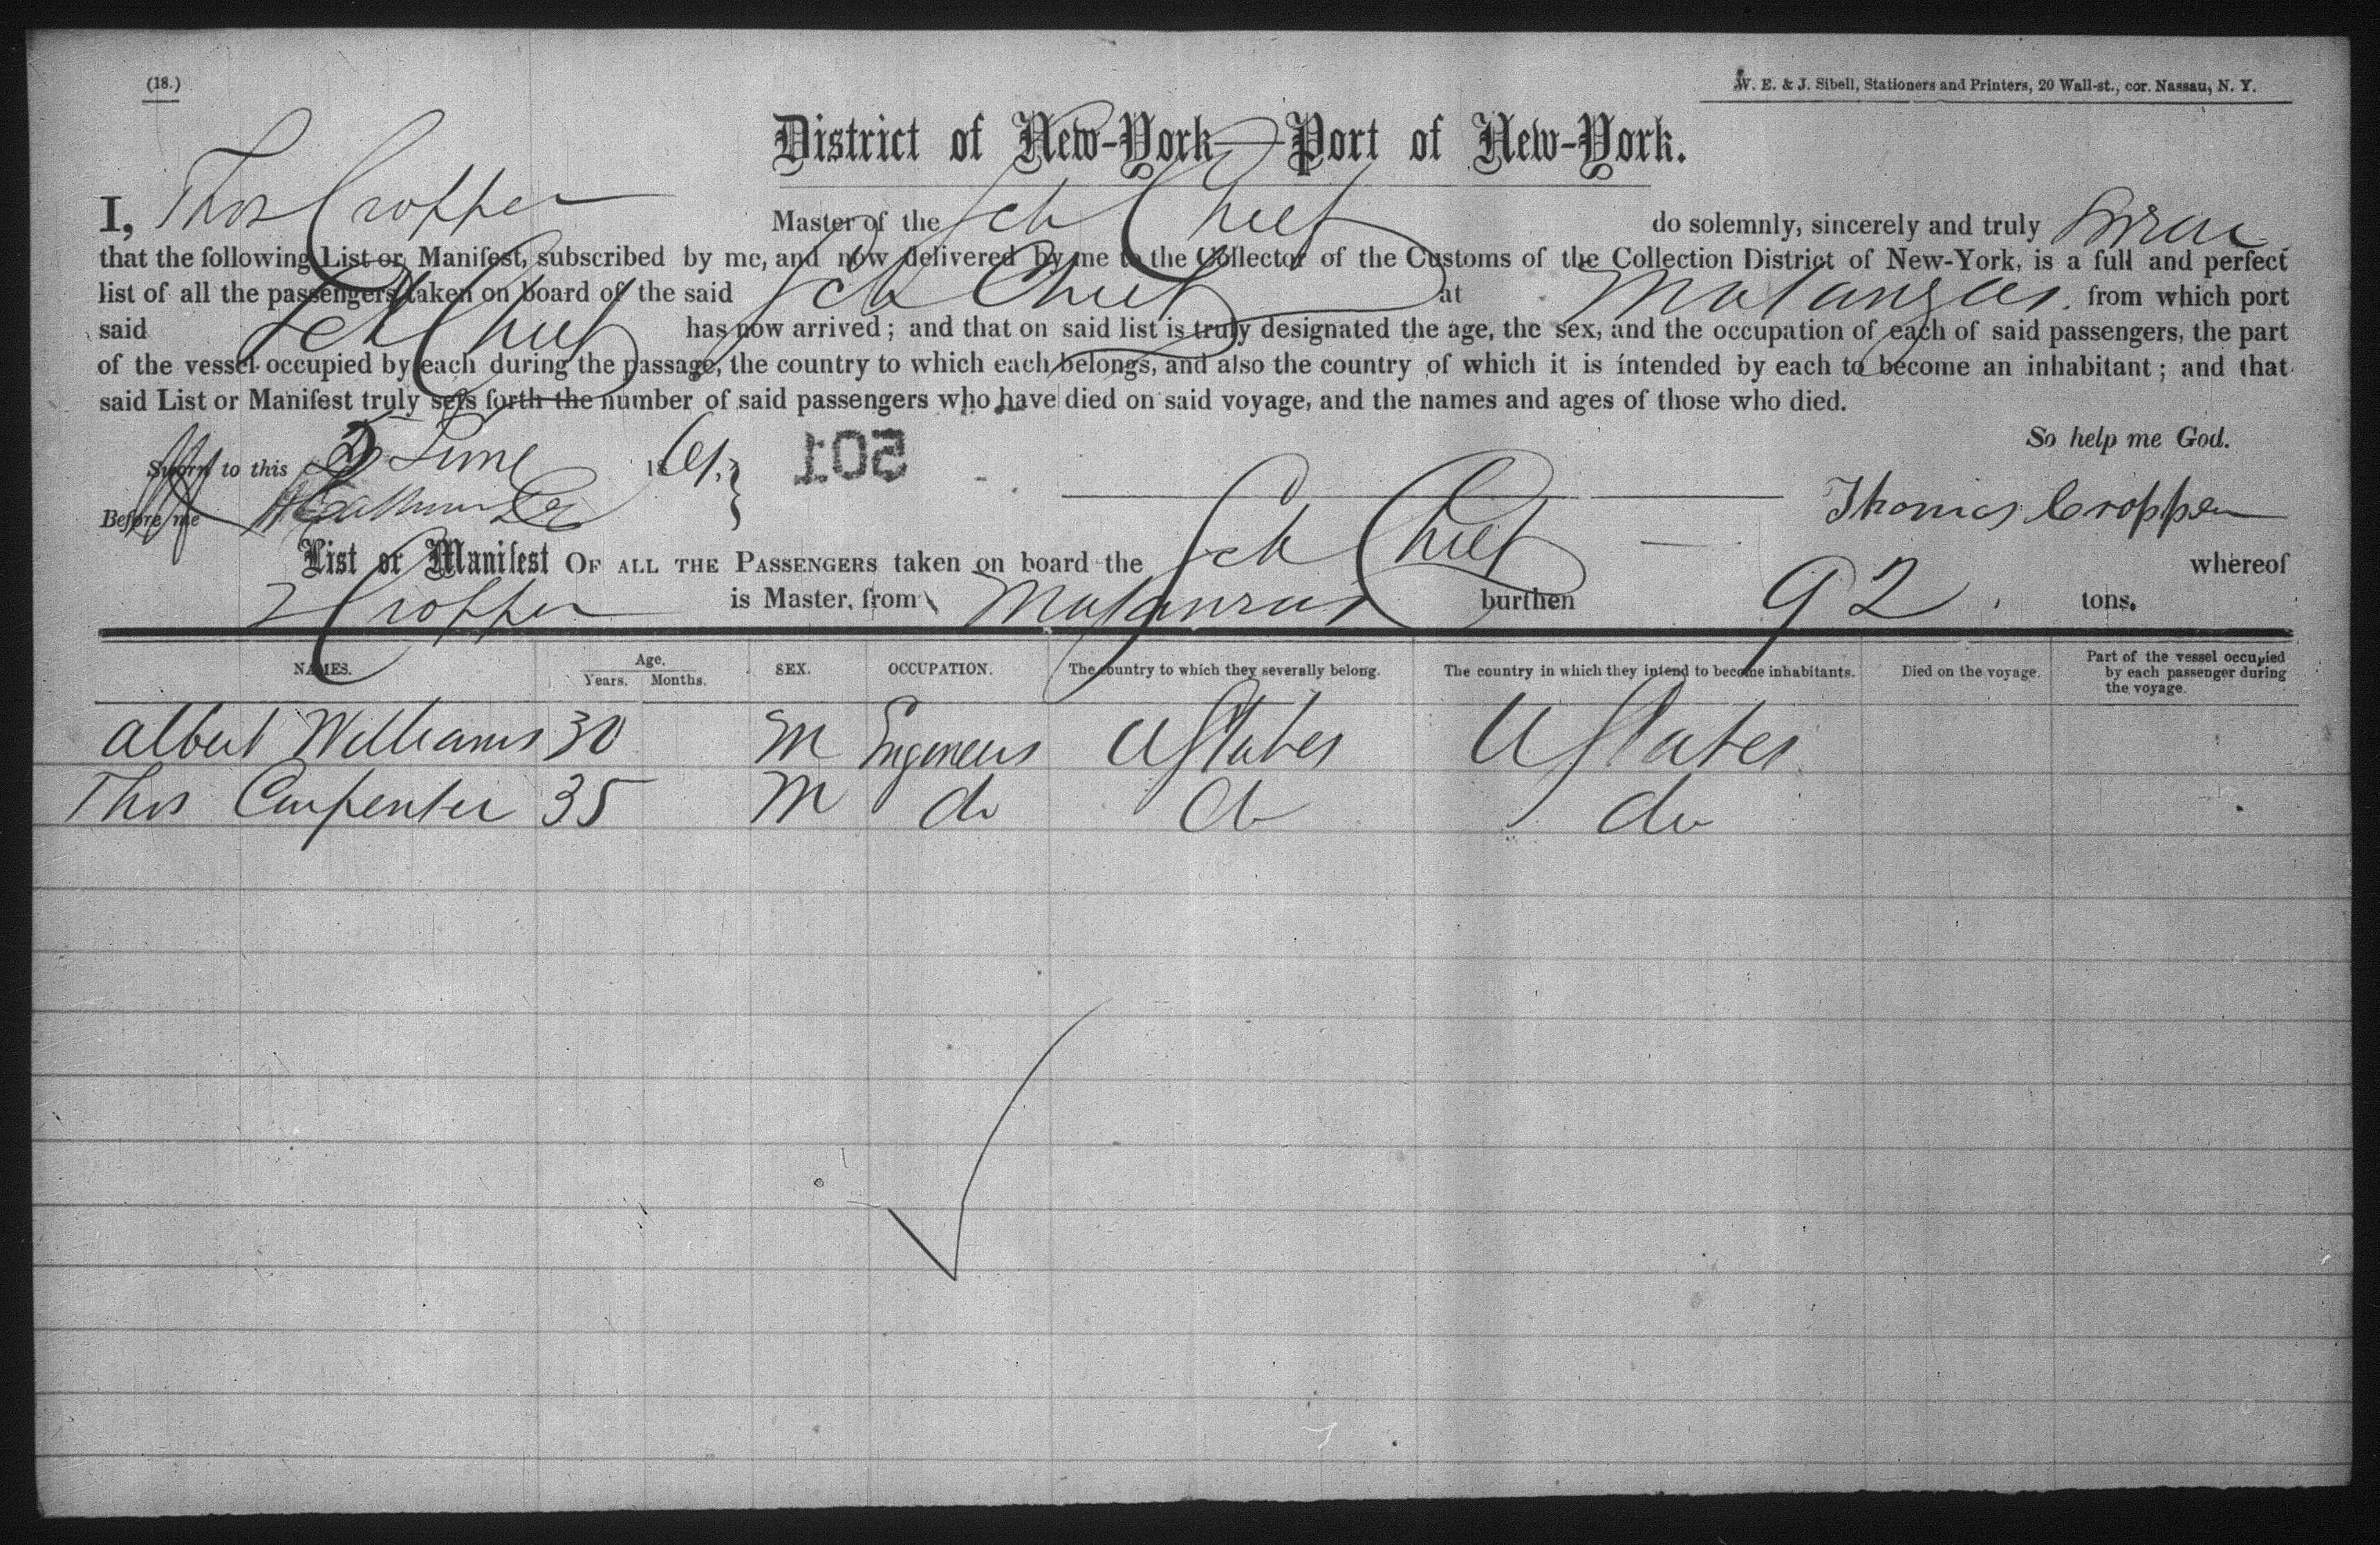 (18.)
W. E. & J. Sibell, Stationers and Printers, 20 Wall-st., cor. Nassau, N. Y.
District of New-York—Port of New-York.
I, Thos Cropper Master of the Sch Chief do solemnly, sincerely and truly swear
that the following List or Manifest, subscribed by me, and now delivered by me to the Collector of the Customs of the Collection District of New-York, is a full and perfect
list of all the passengers taken on board of the said Sch Chief at Matanzas from which port
said Sch Chief has now arrived; and that on said list is truly designated the age, the sex, and the occupation of each of said passengers, the part
of the vessel occupied by each during the passage, the country to which each belongs, and also the country of which it is intended by each to become an inhabitant; and that
said List or Manifest truly sets forth the number of said passengers who have died on said voyage, and the names and ages of those who died.
So help me God.
Sworn to this 5 June 1861.
501
Before me
Thomas Cropper
List or Manifest OF ALL THE PASSENGERS taken on board the Sch Chief whereof
Cropper is Master, from Matanzas burthen 92 tons.
NAMES. Age. Years. Months. SEX. OCCUPATION. The country to which they severally belong. The country in which they intend to become inhabitants. Died on the voyage. Part of the vessel occupied by each passenger during the voyage.
Albert Williams 30 M Engeneers U States U States
Thos Carpenter 35 M do do do